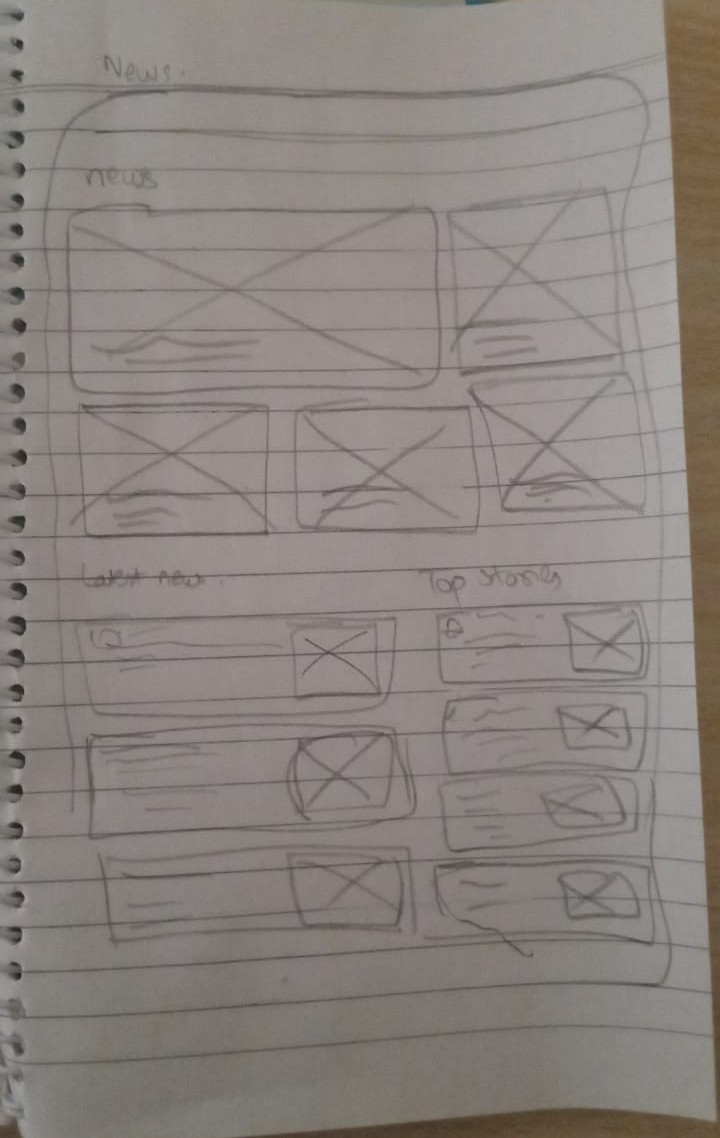 News.
news
Latest news.
Top stories